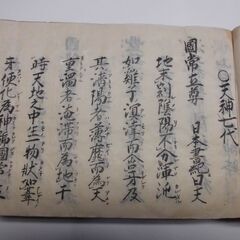 〇天神七代
國常立尊 日本書紀曰天
地未剖陰陽不分渾沌
如雞子溟涬而含牙及
其清陽者薄靡而為天
重濁者淹滞而為地于
時天地之中生一物狀如葦
牙便化為神号國常立